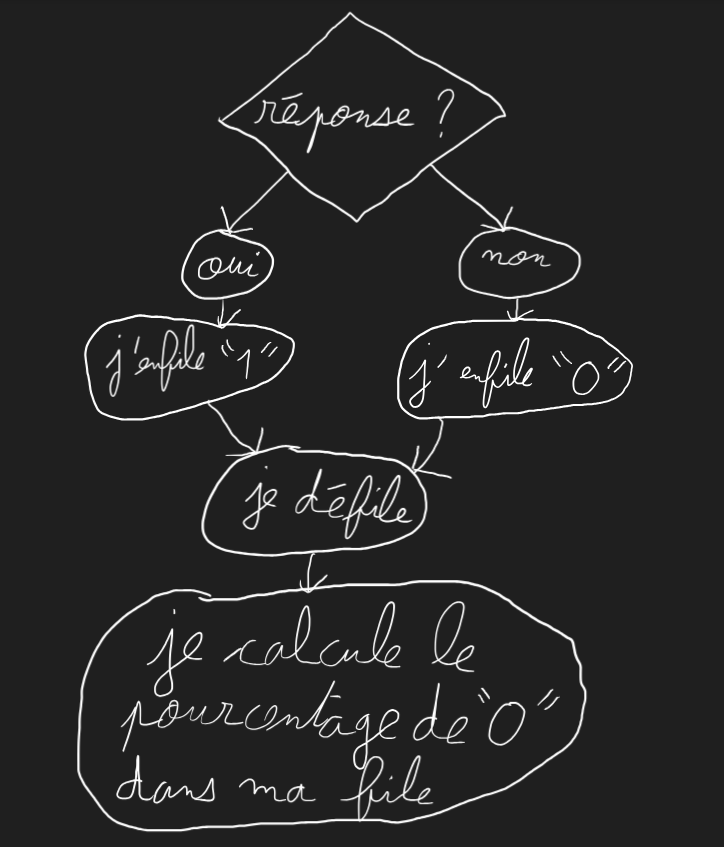 réponse ?
oui
non
j'enfile "1"
j'enfile "0"
je défile
je calcule le
pourcentage de "0"
dans ma file